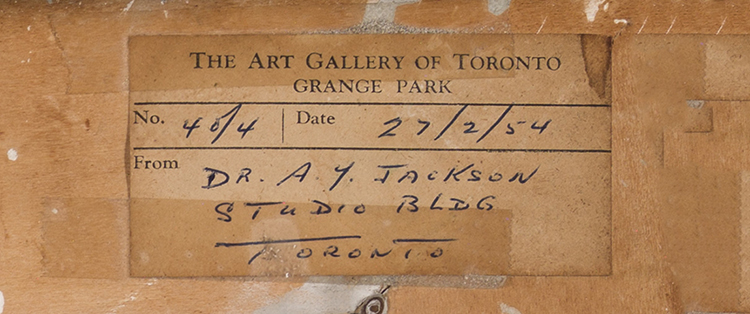 THE ART GALLERY OF TORONTO
GRANGE PARK
No. 40/4 Date 27/2/54
From DR. A. Y. JACKSON
STUDIO BLDG
TORONTO